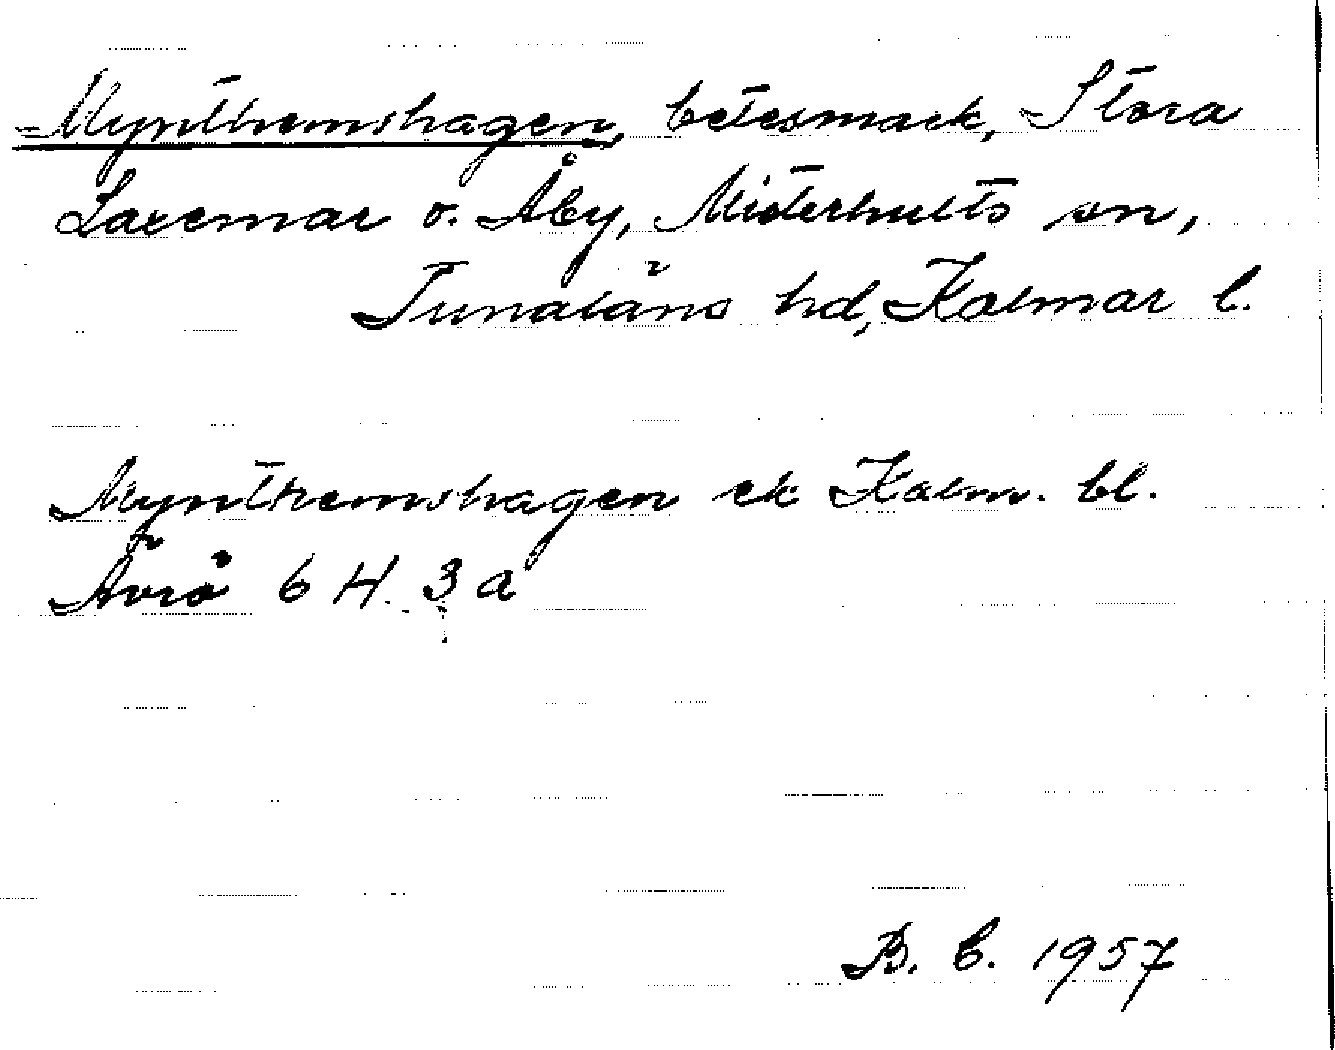 Mynthemshagen, betesmark, Stora
Laxemar o. Åby, Misterhults sn,
Tunaläns hd, Kalmar l.
Mynthemshagen ek Kalm. bl.
Ävrö 6 H. 3 a
B. E. 1957